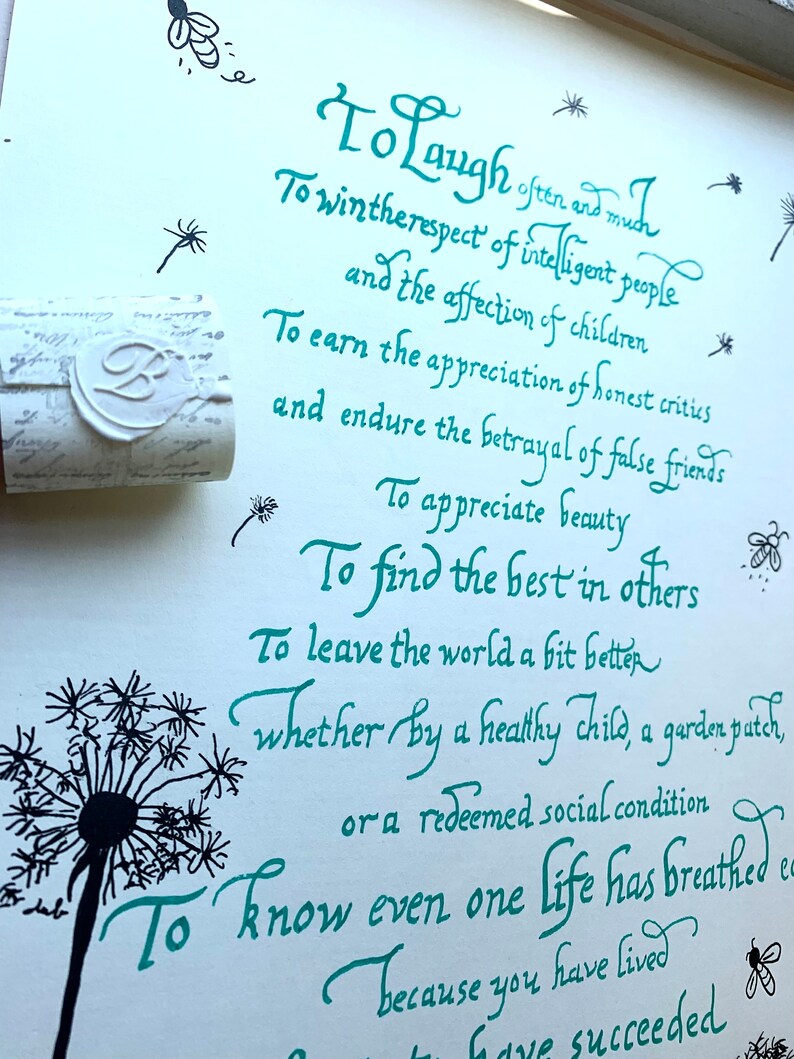 To Laugh often and much
To win the respect of intelligent people
and the affection of children
To earn the appreciation of honest critics
and endure the betrayal of false friends
B
To appreciate beauty
To find the best in others
To leave the world a bit better
whether by a healthy child, a garden patch,
or a redeemed social condition
To know even one life has breathed
because you have lived
to have succeeded